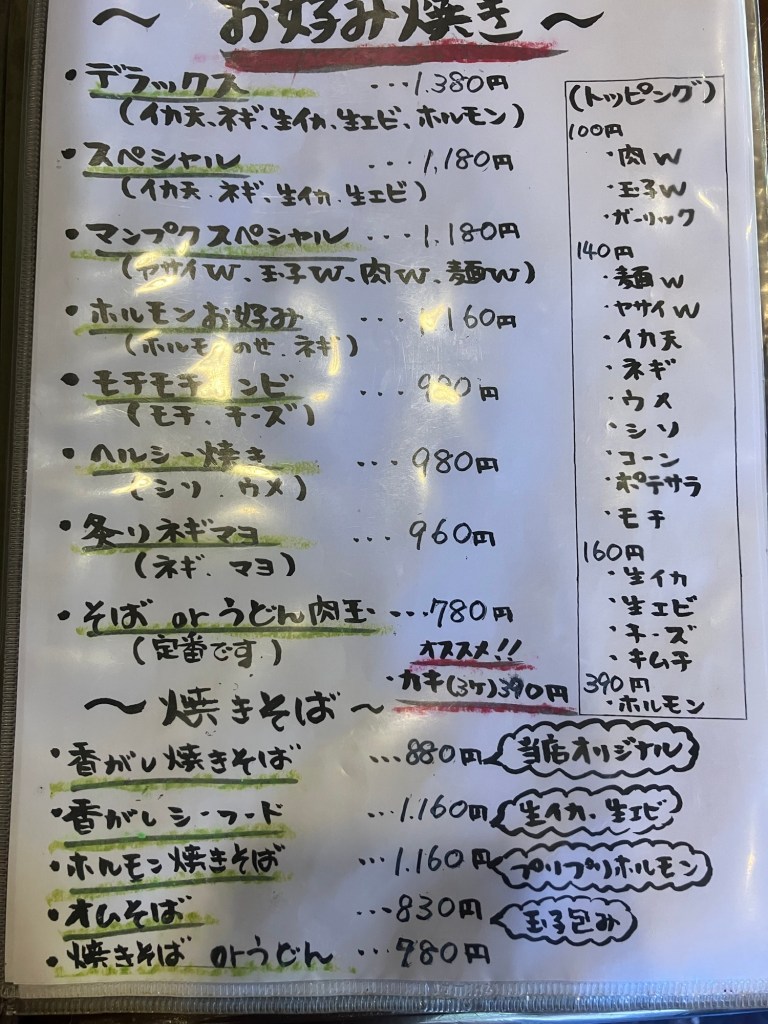 ～ お好み焼き ～
・デラックス ・・・1.380円
(イカ天、ネギ、生イカ、生エビ、ホルモン)
・スペシャル ・・・1,180円
(イカ天、ネギ、生イカ、生エビ)
・マンプクスペシャル ・・・1,180円
(ヤサイW、玉子W、肉W、麺W)
・ホルモンお好み ・・・ 160円
(ホルモ のせ、ネギ)
・モチモチ ンビ ・・・ 円
(モチ、チーズ)
・ヘルシー焼き ・・・980円
(シソ、ウメ)
・炙りネギマヨ ・・・960円
(ネギ、マヨ)
・そば orうどん肉玉 ・・・780円
(定番です)
オススメ!!
・カキ(3ケ)390円
(トッピング)
100円
・肉W
・玉子W
・ガーリック
140円
・麺W
・ヤサイW
・イカ天
・ネギ
・ウメ
・シソ
・コーン
・ポテサラ
・モチ
160円
・生イカ
・生エビ
・チーズ
・キムチ
390円
・ホルモン
～ 焼きそば ～
・香がし焼きそば ・・・880円 当店オリジナル
・香がしシーフード ・・・1.160円 生イカ、生エビ
・ホルモン焼きそば ・・・1.160円 プリプリホルモン
・オムそば ・・・830円 玉子包み
・焼きそば orうどん ・・・780円